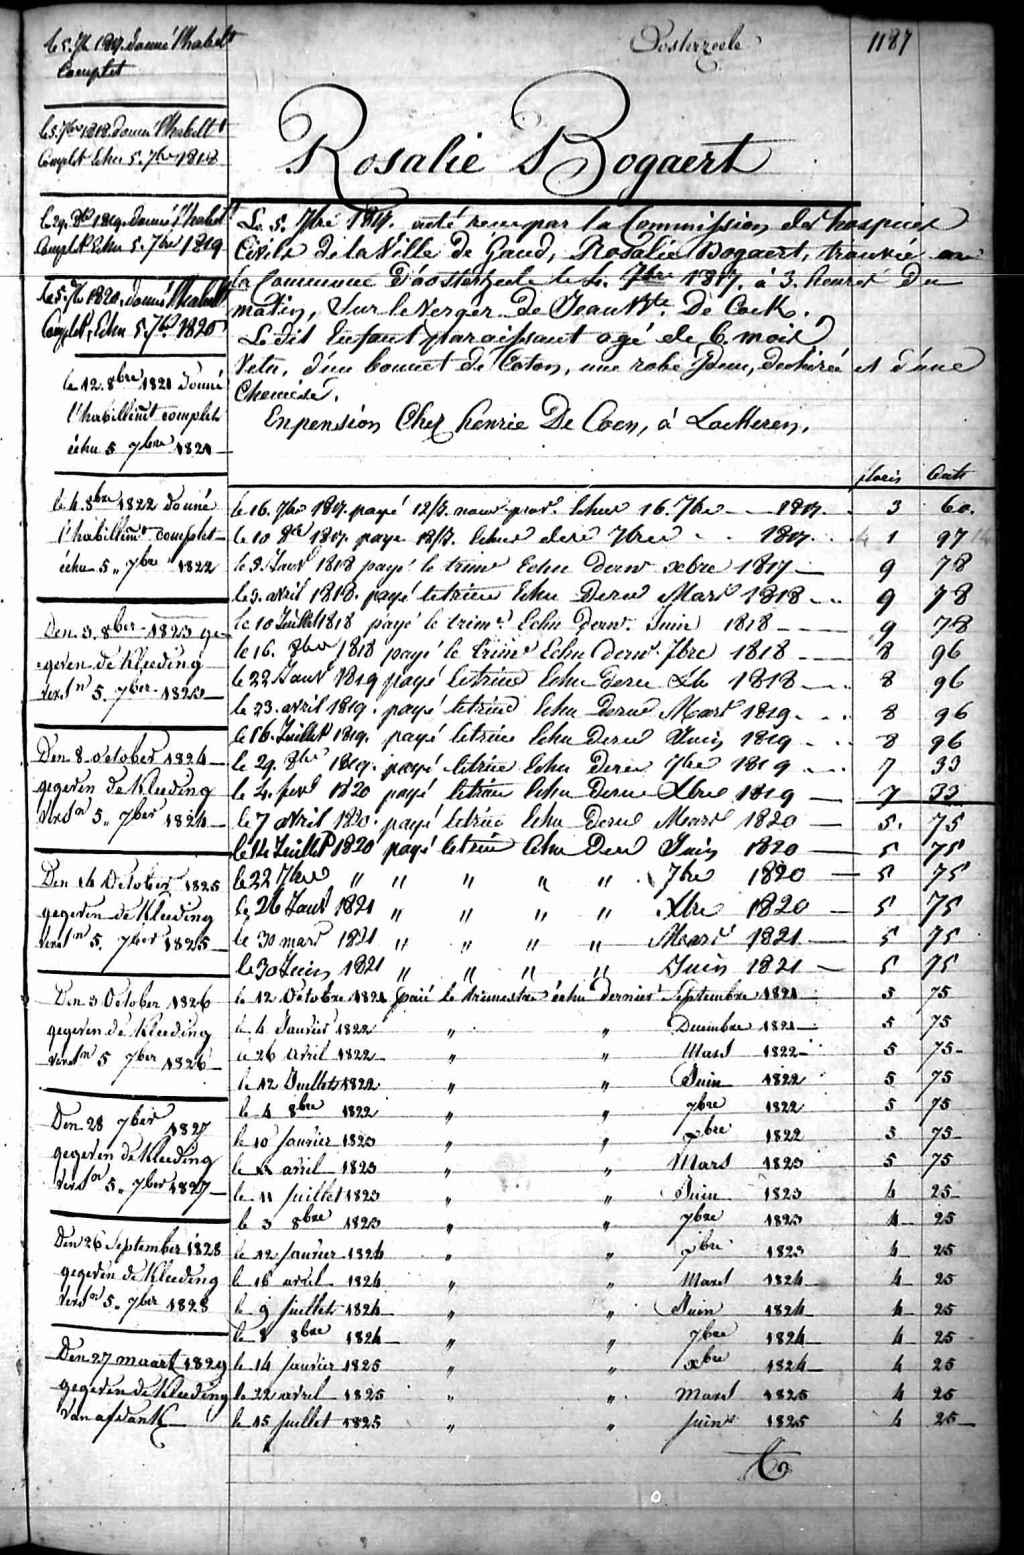 Oosterzeele 1187
Rosalie Bogaert
le 5. 7bre 1817. donné l'habillt
Complet
le 5. 7bre 1818. donné l'habillt
Complet Echu 5. 7bre 1818
le 29. 8bre 1819. donné l'habillt
Complet Echu 5. 7bre 1819
le 5. 7bre 1820. donné l'habillt
Complet, Echu 5. 7bre 1820
le 12. 8bre 1821 donné
l'habillmt complet
échu 5 7bre 1821
le 4. 8bre 1822 donné
l'habillmt complet
échu 5 7bre 1822
Den 3. 8ber 1823 ge-
-geven de Kleeding
5. 7ber 1823
Den 8 October 1824
gegeven de Kleeding
5. 7ber 1824
Den 16 October 1825
gegeven de Kleeding
5. 7ber 1825
Den 3 October 1826
gegeven de Kleeding
5 7ber 1826
Den 28 7ber 1827
gegeven de Kleeding
5. 7ber 1827
Den 26 September 1828
gegeven de Kleeding
5. 7ber 1828
Den 27 maart 1829
gegeven de Kleeding
van afdank
Le 5. 7bre 1817. a été recu par la Commission des hospices
Civils de la Ville de Gand, Rosalie Bogaert, trouvée en
la Commune d'oosterzeele le 4. 7bre 1817. à 3. heures du
matin, Sur le Verger de Jean Bte. De Cock.
Le dit Enfant paraissant agé de 6 mois
Vetu, d'un bonnet de Coton, une robe dechirée et d'une
Chemise.
En pension Chez henrie De Coen, à Lockeren,
floris Cents
le 16. 7bre 1817. payé Echue 16. 7bre 1817 3 60.
le 10 8bre 1817. paye 7bre 1817 1 97
le 9 Janv 1818 payé le trime Echu dern xbre 1817 9 78
le 9. avril 1818. payé le trime Echu dern Mars 1818 9 78
le 10 Juillet 1818 payé le trime Echu dern. Juin 1818 9 78
le 16. 8bre 1818 payé le trime Echu dern. 7bre 1818 8 96
le 22 Janv 1819 payé le trime Echu dern Xb 1818 8 96
le 23. avril 1819. payé le trime Echu dern Mars 1819 8 96
le 16. Juillet 1819. payé le trime Echu dern Juin 1819 8 96
le 29. 8bre 1819. payé le trime Echu dern 7bre 1819 7 33
le 4. fevr 1820 payé le trime Echu dern Xbre 1819 7 33
le 7 avril 1820. payé le trime Echu dern Mars 1820 5. 75
le 14 Juillet 1820 payé le trime Echu dern Juin 1820 5 75
le 22 7bre " " " " " 7bre 1820 5 75
le 26 Janv 1821 " " " " " Xbre 1820 5 75
le 30 mars 1821 " " " " " Mars 1821 5 75
le 30 Juin 1821 " " " " Juin 1821 5 75
le 12 Octobre 1821 paié le trimestre échu dernier Septembre 1821 5 75
le 4 Janvier 1822 " " Decembre 1821 5 75
le 26 avril 1822 " " Mars 1822 5 75
le 12 Juillet 1822 " " Juin 1822 5 75
le 4 8bre 1822 " " 7bre 1822 5 75
le 10 janvier 1823 " " xbre 1822 5 75
le avril 1823 " " Mars 1823 5 75
le 11 juillet 1823 " " Juin 1823 4 25
le 3 8bre 1823 " " 7bre 1823 4 25
le 12 janvier 1824 " " xbre 1823 4 25
le 18 avril 1824 " " Mars 1824 4 25
le 9 juillet 1824 " " Juin 1824 4 25
le 8 8bre 1824 " " 7bre 1824 4 25
le 14 janvier 1825 " " xbre 1824 4 25
le 22 avril 1825 " " Mars 1825 4 25
le 15 juillet 1825 " " juin 1825 4 25